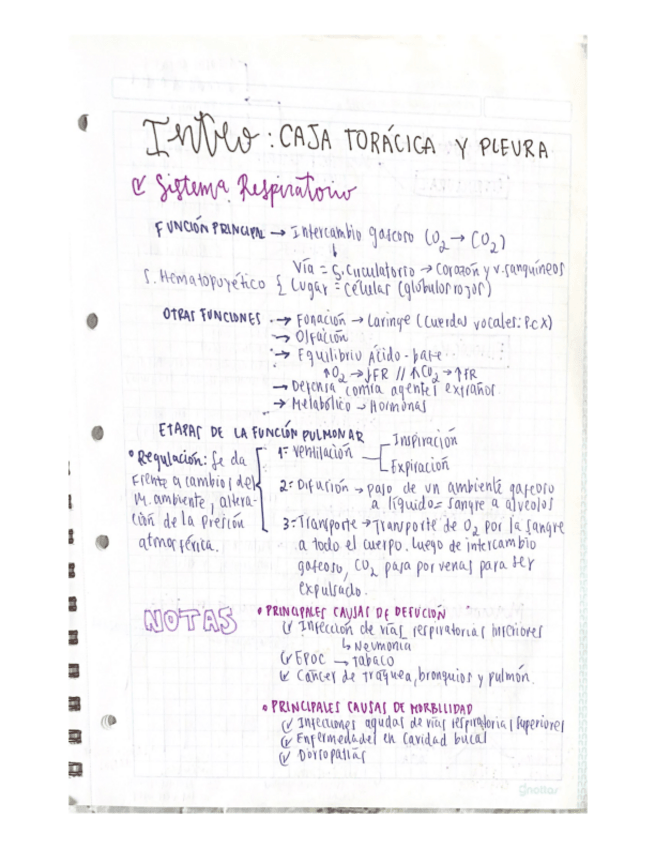 Intro: CAJA TORÁCICA Y PLEURA
Sistema Respiratorio
FUNCIÓN PRINCIPAL → Intercambio gaseoso (O2 → CO2)
↓
Vía = S. Circulatorio → Corazón y v. sanguíneos
S. Hematopoyético { Lugar = Células (glóbulos rojos)
OTRAS FUNCIONES → Fonación → Laringe (Cuerdas vocales: P.C X)
→ Olfación
→ Equilibrio Ácido-base
↑O2 → ↓FR // ↑CO2 → ↑FR
→ Defensa contra agentes extraños
→ Metabólico → Hormonas
ETAPAS DE LA FUNCIÓN PULMONAR
• Regulación: Se da frente a cambios del M. ambiente, alteración de la Presión atmosférica.
1= Ventilación
Inspiración
Expiración
2= Difusión → paso de un ambiente gaseoso
a líquido = sangre a alveolos
3= Transporte → Transporte de O2 por la sangre
a todo el cuerpo. Luego de intercambio
gaseoso, CO2 pasa por venas para ser
expulsado.
NOTAS
• PRINCIPALES CAUSAS DE DEFUCIÓN
Infección de vías respiratorias inferiores
↳ Neumonía
EPOC → Tabaco
Cáncer de tráquea, bronquios y pulmón.
• PRINCIPALES CAUSAS DE MORBILIDAD
Infecciones agudas de vías respiratorias superiores
Enfermedades en cavidad bucal
Dorsopatías
gnotias